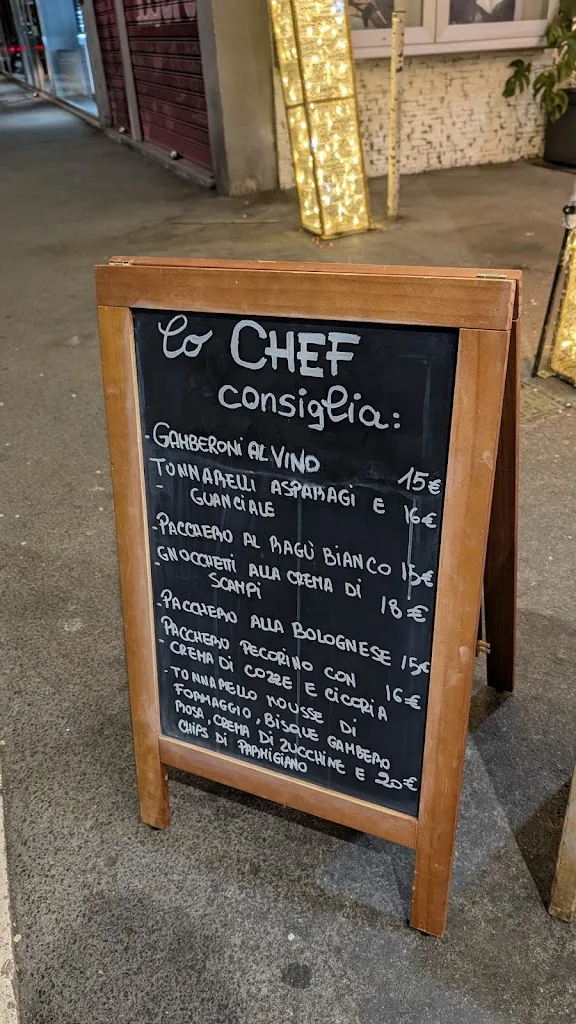 Lo CHEF
consiglia:
- GAMBERONI AL VINO 15€
- TONNARELLI ASPARAGI E
GUANCIALE 16€
- PACCHERO AL RAGÙ BIANCO 15€
- GNOCCHETTI ALLA CREMA DI
SCAMPI 18€
- PACCHERO ALLA BOLOGNESE 15€
- PACCHERO PECORINO CON
CREMA DI COZZE E CICORIA 16€
- TONNARELLO MOUSSE DI
FORMAGGIO, BISQUE GAMBERO
ROSA, CREMA DI ZUCCHINE E
CHIPS DI PARMIGIANO 20€